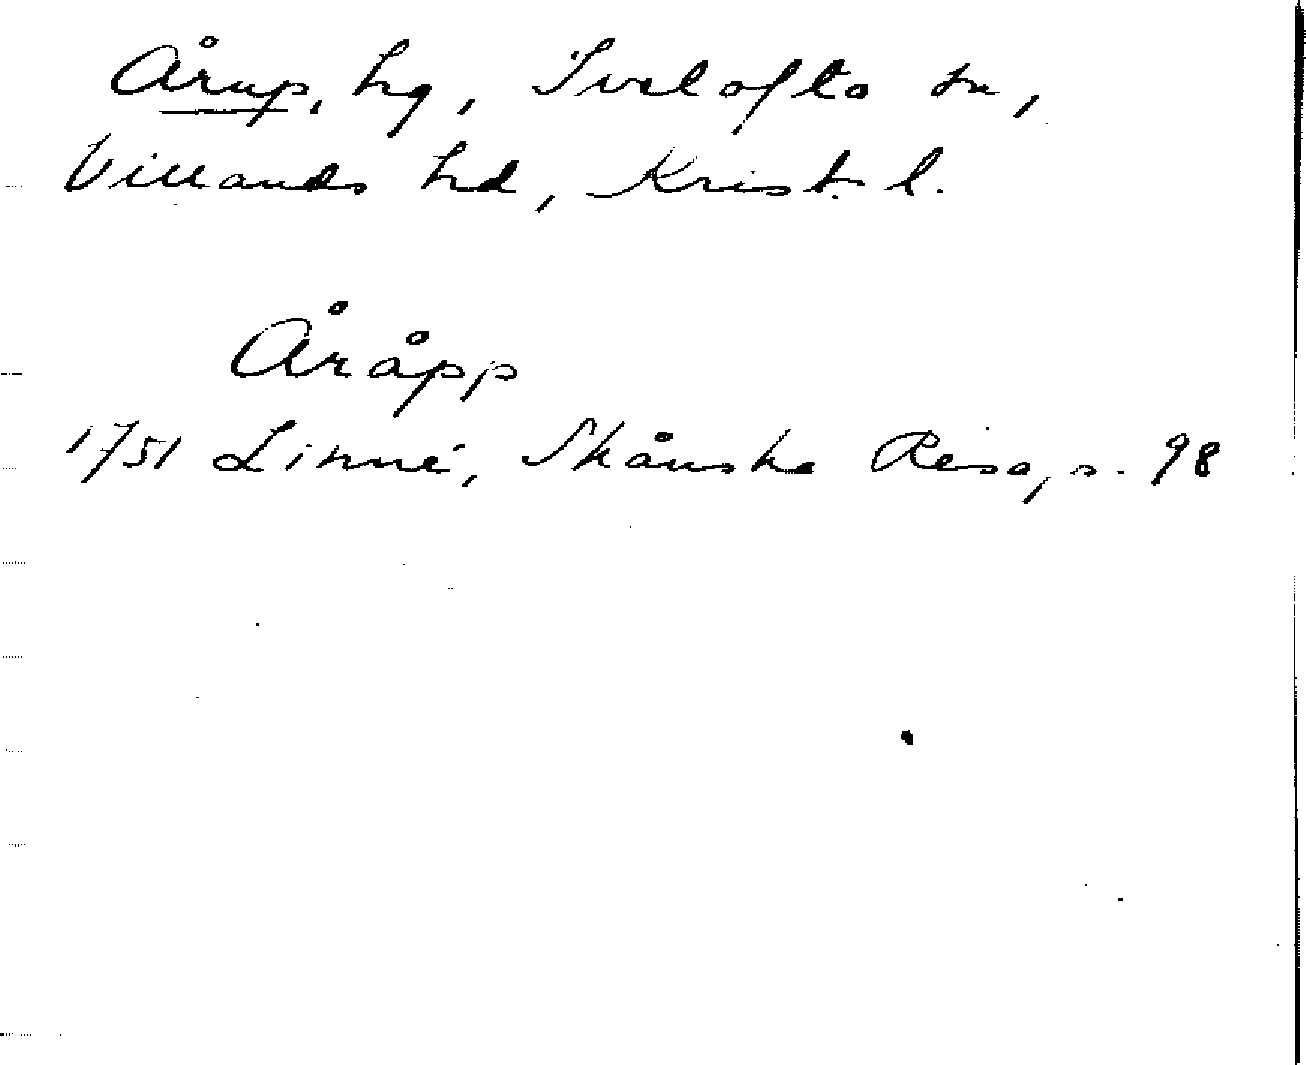 Årup, hg, Ivetofta sn,
Villands hd, Krist. l.
Åråpp
1751 Linné, Skånska Resa, s. 98